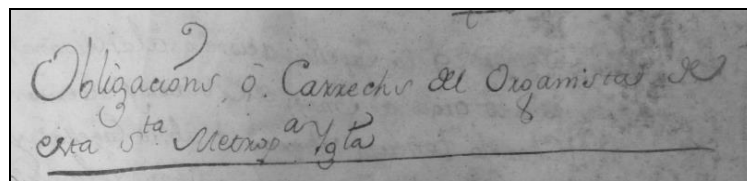 Obligacións, ò Carrechs del Organista de
esta Sta Metropa Ygta